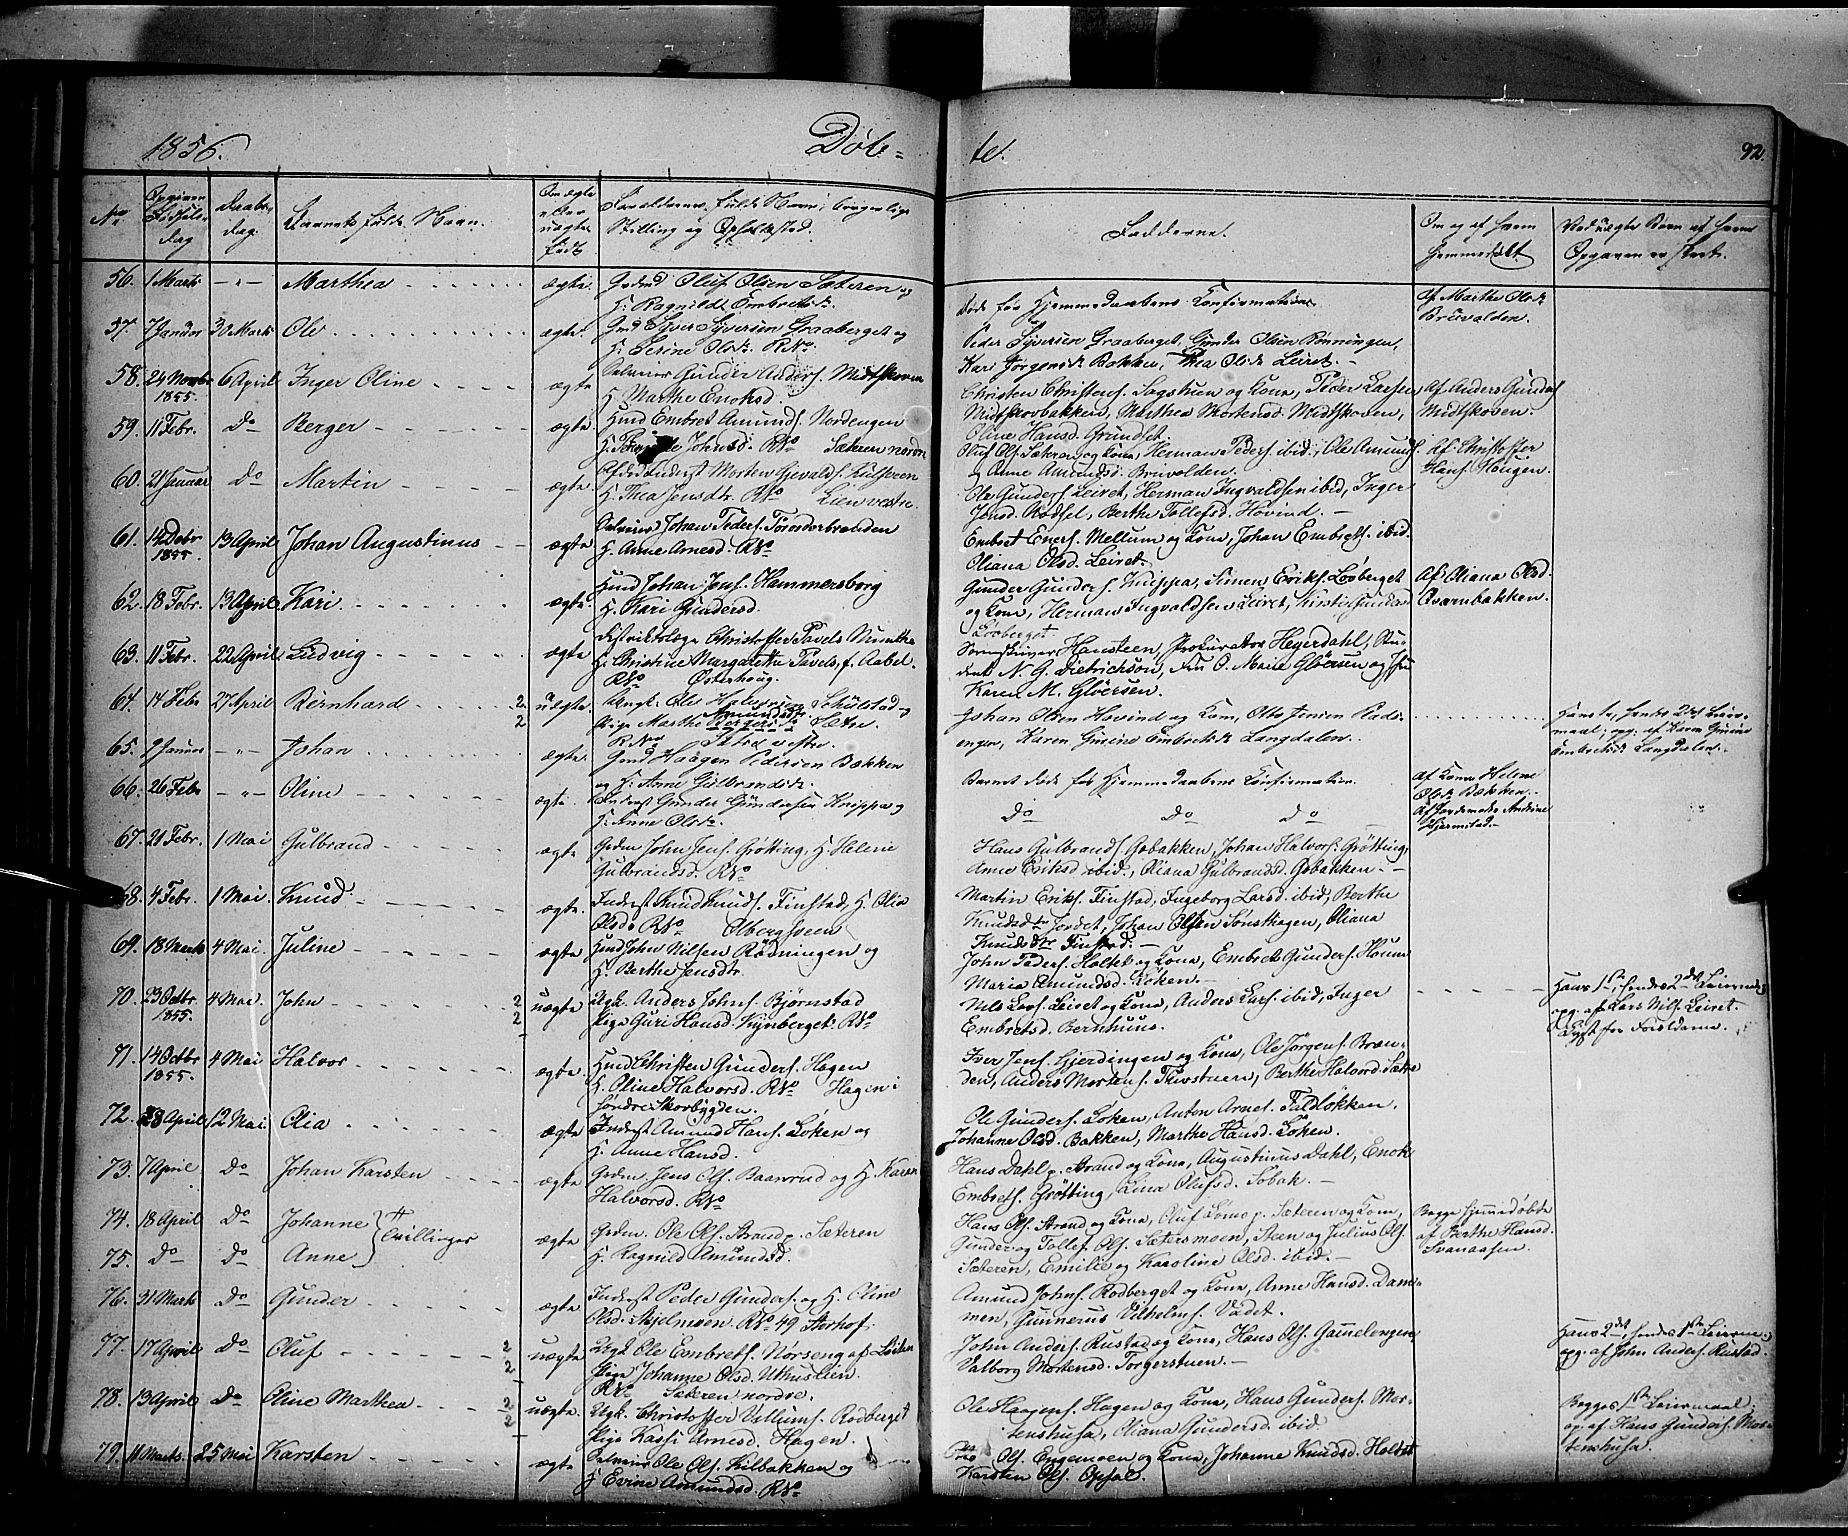 1856.
Døb-
te.
92.
No
Opgiven Fødsels-dag
Daabs-dag.
Barnets fulde Navn.
Om ægte eller uægte født
Forældrenes fulde Navn, borgerlige Stilling og Opholdssted.
Fadderne.
Om og af hvem hjemmedøbt
Ved uægte Børn af hvem Opgaven er skeet.
56. 1 Marts -"- Marthea ægte Oluf Olsen Sæteren og
H. Ragnild Embretsdr.
Døde før Hjemmedaabens Confirmation.
Af Marthe Olsdr
Bruvolden.
57. 7 Januar 30 Marts Ole ægte Gmd Syver Syversen Graaberget og
H. Serine Olsdr. RNo.
Peder Syversen Graaberget, Gunder Olsen Rønningen,
Kari Jørgensdr Bakken, Thea Olsdr Leiret.
58. 24 Novbr 1855. 6 April Inger Oline ægte Gunder Anders. Midtskoven
H. Marthe Enoksd.
Christen Christens. Sagstuen og Kone, Peder Larsen
Midtskovbakken, Marthea Mortensd. Midtskoven,
Oline Hansd. Grundset
Af Anders Gunders
Midtskoven.
59. 11 Febr. Do Berger ægte Huusmd Embret Amunds. Nordengen
Johnsd. RNo Sæteren nordre
Oluf Ols. Sæteren og Kone, Herman Peders. ibid, Ole Amunds.
og Anne Amundsd. Bruvolden.
Af Christoffer
Hans. Haugen
60. 21 Januar Do Martin ægte Morten
H. Thea Jensdtr. RNo Lien vestre.
Ole Gunders. Leiret, Herman Ingvaldsen ibid, Inger
Jensd. Nodset, Berthe Tollefsd. Hovind.
61. 14 Debr 1855 13 April Johan Augustinus ægte Johan Peders.
H. Anne Arnesd. RNo
Embret Eners. Mellum og Kone, Johan Embrets. ibid.
Oliana Olsd. Leiret.
62. 18 Febr. 13 April Kari ægte Huusmd Johan Jens. Hammersborg
H. Kari Gundersd.
Gunder Gunders. Knippa, Simen Eriks. Løvberget
og Kone, Herman Ingvaldsen Leiret, Kirsti Gundersd
Løvberget
Af Oliana Olsd.
Qværnbakken.
63. 11 Febr. 22 April Ludvig ægte Distriktslæge Christoffer Pavels Munthe
H. Christine Margarethe Pavels, f. Aabel.
RNo Østerhoug.
Sorenskriver Hansteen, Prokurator Heyerdahl, Stu-
dent N. G. Dietrichson, Fru O. Marie Gløersen og Fru
Karen M. Gløersen.
64. 14 Febr 27 April Bernhard 2 2 uægte. Ungk. Ole
Pige Marthe Amundsdr Sætre.
RNo Sætre vestre.
Johan Olsen Hovind og Kone, Otto Jensen Rads-
engen, Karen Gurine Embretsdr Langdalen.
Hans 1ste, hendes 2det Leier-
maal; opg. af Karen Gurine
Embretsdr Langdalen.
65. 9 Januar -"- Johan ægte. Gmd Haagen Pedersen Bakken
og H. Anne Gulbrandsdr.
Barnet døde før Hjemmedaabens Confirmation.
Af Konen Helene
Olsdr Bakken.
66. 26 Febr -"- Oline ægte. Inderst Gunder Gundersen Knippa og
H. Anne Olsdr.
Do Do Do
Af Jordemoder Andrine
Hjermstad.
67. 21 Febr. 1 Mai Gulbrand ægte John Jens. Grøtting, H. Helene
Gulbrandsd. RNo
Hans Gulbrands. Gobakken, Johan Halvors. Grøtting,
Anne Eriksd ibid., Oliana Gulbrandsd. Gobakken.
68. 4 Febr. 1 Mai. Knud ægte. Inderst Knud Knuds. Finstad, H. Olia
Olsd. RNo Olbergsveen
Martin Eriks. Finstad, Ingeborg Larsd. ibid, Berthe
Knudsdtr Jordet, Johan Olsen Sønsthagen, Oliana
Knudsdtr Finstad.
69. 18 Marts 4 Mai. Juline ægte Huusmd John Nilsen Rødningen og
H. Berthe Jensdtr.
John Peders. Holtet og Kone, Embret Gunders. Hovum
Maria Amundsd. Løken.
70. 23 Octbr 1855. 4 Mai. John 2 2 uægte Ungk. Anders Johns. Bjørnstad
Pige Guri Hansd. Kynberget. RNo
Nils Lars. Leiret og Kone, Anders Lars. ibid, Inger
Embretsd. Bernhuus.
Hans 1ste, hendes 2det Leiermaal;
opg. af Lars Nils. Leiret.
Lyst for Forældrene.
71. 14 Octbr 1855. 4 Mai Halvor ægte. Huusmd Christen Gunders. Hagen
H. Oline Halvorsd. RNo Hagen i
søndre Skovbygden.
Iver Jens. Gjerdingen og Kone, Ole Jørgens. Bran-
den, Anders Mortens. Thorstuen, Berthe Halvorsd. Sætre
72. 23 April 12 Mai. Olia ægte Inderst Amund Hans. Løken og
H. Anne Hansd.
Ole Gunders. Løken, Anton Arnes. Faldløkken.
Johanne Olsd. Bakken, Marthe Hansd. Løken.
73. 7 April Do Johan Karsten ægte Jens Ols. Baanrud og H. Karen
Halvorsd. RNo
Hans Dahl p. Strand og Kone, Augustinus Dahl, Enok
Embrets. Grøtting, Lina Olufsd. Sobak.
74. 18 April Do Johanne } Tvillinger
75. Do Do Anne
ægte Ole Ols. Strand p. Sæteren
H. Ragnild Amundsd.
Hans Ols. Strand og Kone, Oluf Lomo p. Sæteren og Kone,
Gunder og Tollef Ols. Sætersmoen, Steen og Julius Ols.
Sæteren, Emilie og Karoline Olsd. ibid.
Begge hjemmedøbte
af Berthe Hansd.
Svenaasen.
76. 31 Marts Do Gunder ægte Inderst Peder Gunders. og H. Eline
Olsd. Skjelmoen. RNo 49 Storhof.
Amund Johns. Rodberget og Kone, Anne Hansd. Dam-
men, Gunnerus Vilhelms. Vadet.
77. 17 April Do Oluf 2 2 uægte Ungk Ole Embrets. Nørseng af Løiten
Pige Johanne Olsd. Uthuslien.
RNo Sæteren nordre.
John Anders. Rustad og Kone, Hans Ols. Gammelengen
Valborg Mortensd. Torgerstuen.
Hans 2det, hendes 1ste Leierm.;
opg. af John Anders. Rustad.
78. 13 April Do Eline Marthea 2 2 uægte. Ungk. Christoffer Villums. Rodberget
Pige Kassi Arnesd. Hagen.
Ole Haagens. Hagen og Kone, Hans Gunders. Mor-
tenshusa, Oliana Gundersd. ibid
Begges 1ste Leiermaal;
op. af Hans Gunders. Mor-
tenshusa.
79. 11 Marts 25 Mai Karsten ægte Ole Ols. Kulbakken og
H. Evine Amundsd. RNo
Ols. Engemoen og Kone, Johanne Knudsd. Holtet
Karsten Ols. Opsal.